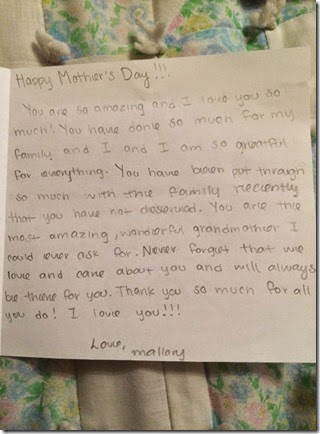 Happy Mother's Day!!!
You are so amazing and I love you so
much! You have done so much for my
family and I and I am so greatful
for everything. You have been put through
so much with the family recently
that you have not deserved. You are the
most amazing, wonderful grandmother I
could ever ask for. Never forget that we
love and care about you and will always
be there for you. Thank you so much for all
you do! I love you!!!
Love,
mallory